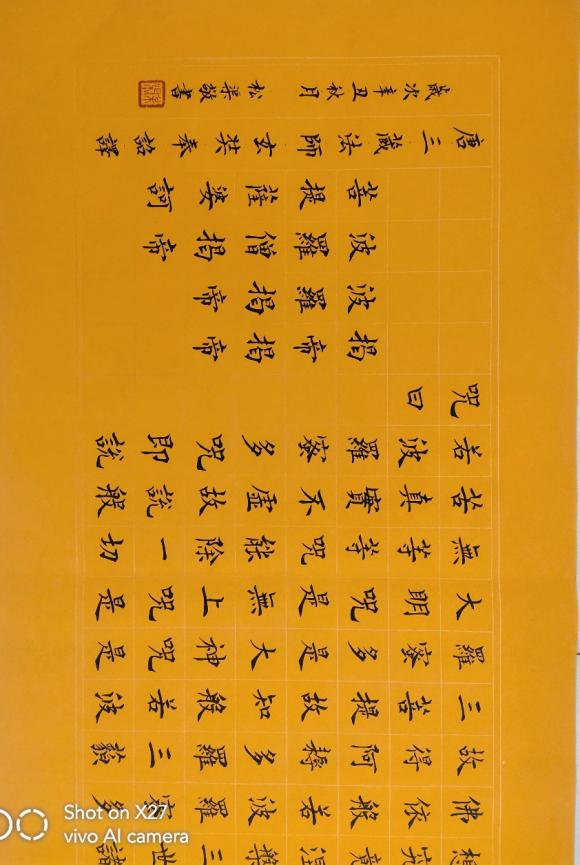 想究竟涅槃三世諸
佛依般若波羅蜜多
故得阿耨多羅三藐
三菩提故知般若波
羅蜜多是大神咒是
大明咒是無上咒是
無等等咒能除一切
苦真實不虛故說般
若波羅蜜多咒即說
咒曰
揭帝揭帝
波羅揭帝
波羅僧揭帝
菩提薩婆訶
唐三藏法師玄奘奉詔譯
歲次辛丑秋月 松渠敬書
Shot on X27
vivo AI camera